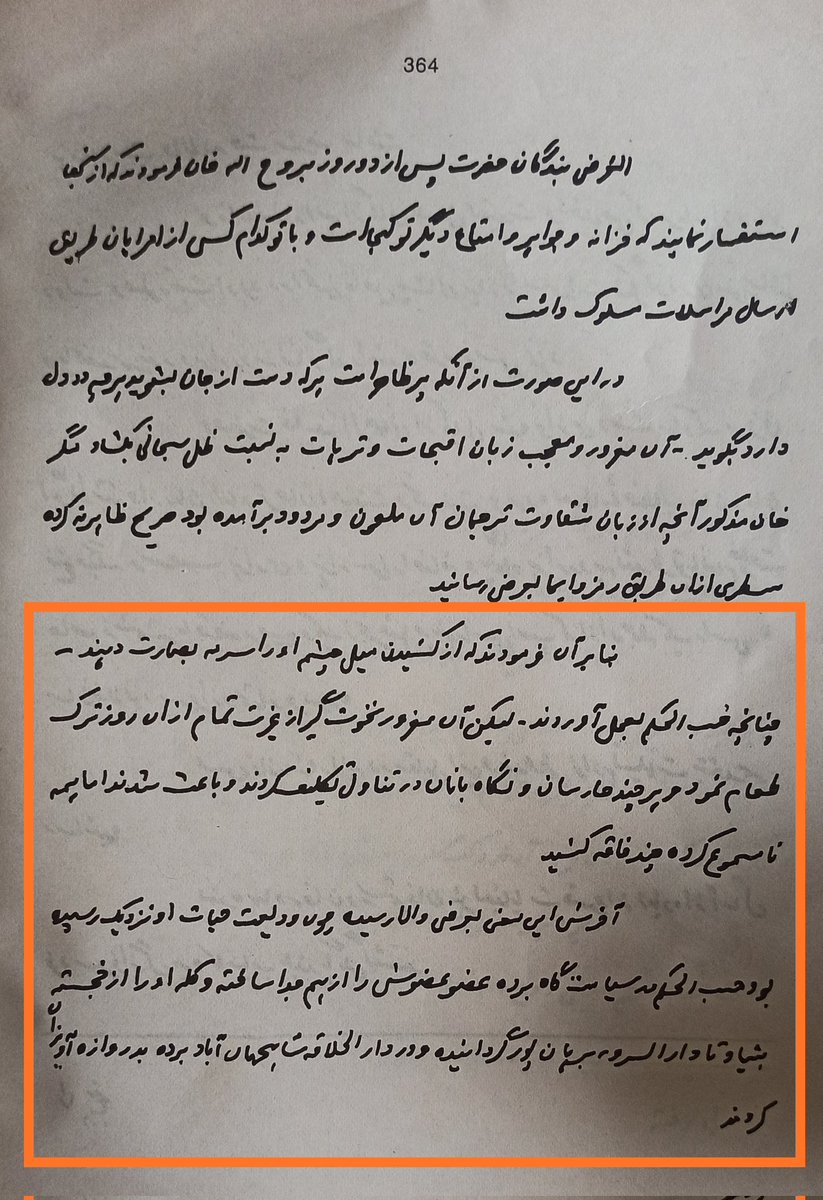 364
الغرض بندگان حضرت پس از دو روز بروح الله خان فرمودند که از سنبها
استفسار نمایند که خزانه و جواهر و امتاع دیگر تو کجا است و با تو کدام کسی از امرایان طریق
ارسال مراسلات مسلوک داشت
در این صورت از آنکه پر ظاهر است هر که دست از جان بشوید هر چه در دل
دارد بگوید - آن مغرور و معجب زبان اقبحات و ترهات به نسبت ظل سبحانی بکشاد مگر
خان مذکور آنچه از زبان شقاوت ترجمان آن ملعون و مردود برآمده بود صریح ظاهر نه کرده
سطری ازان طریق رمز و ایما بعرض رسانید
بنا بر آن فرمودند که از کشیدن میل چشم او را سرمه بصارت دهند -
چنانچه حسب الحکم بعمل آوردند - لیکن آن مغرور نخوت گیر از غیرت تمام ازان روز ترک
طعام نمود هر چند حارسان و نگاه بانان در تناول تکلیف کردند و باعث شدند اما همه
نا مسموع کرده چند فاقه کشید
آخرش این معنی بعرض والا رسیده چون ودیعت حیات او نزدیک رسیده
بود حسب الحکم در سیاست گاه برده عضو عضوش را از هم جدا ساخته و کله او را از خجسته
بنیاد تا دار السرور برهان پور گردانیده و در دار الخلافه شاهجهان آباد برده بدروازه آویزان
کردند